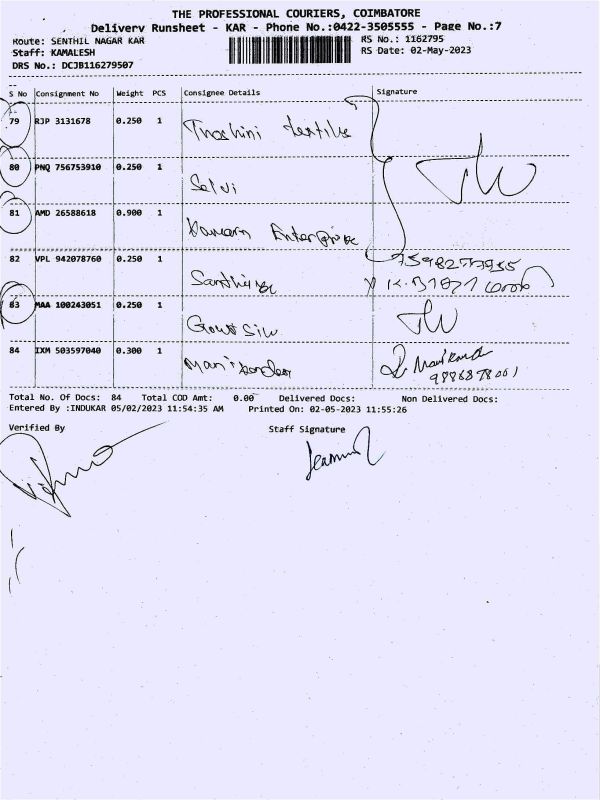 THE PROFESSIONAL COURIERS, COIMBATORE
Delivery Runsheet - KAR - Phone No.:0422-3505555 - Page No.:7
Route: SENTHIL NAGAR KAR
RS No.: 1162795
Staff: KAMALESH
RS Date: 02-May-2023
DRS No.: DCJB116279507
S No Consignment No Weight PCS Consignee Details Signature
79 RJP 3131678 0.250 1 textile
80 PNQ 756753910 0.250 1 Selvi
81 AMD 26588618 0.900 1 Enterprise
82 VPL 942078760 0.250 1
83 MAA 100243051 0.250 1
84 IXM 503597040 0.300 1 Manikandan
Total No. Of Docs: 84 Total COD Amt: 0.00 Delivered Docs: Non Delivered Docs:
Entered By :INDUKAR 05/02/2023 11:54:35 AM Printed On: 02-05-2023 11:55:26
Verified By Staff Signature